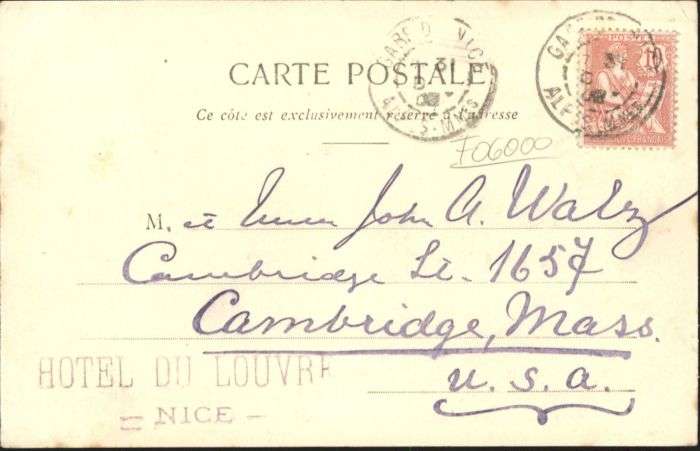 CARTE POSTALE
Ce côté est exclusivement réservé à l'adresse
GARE DE NICE
31
ALPES-MMES
GARE DE
31
ALPES-MMES
10
F06000
M. et John A. Walz
Cambridge St. 1657
Cambridge, Mass.
U. S. A.
HOTEL DU LOUVRE
NICE